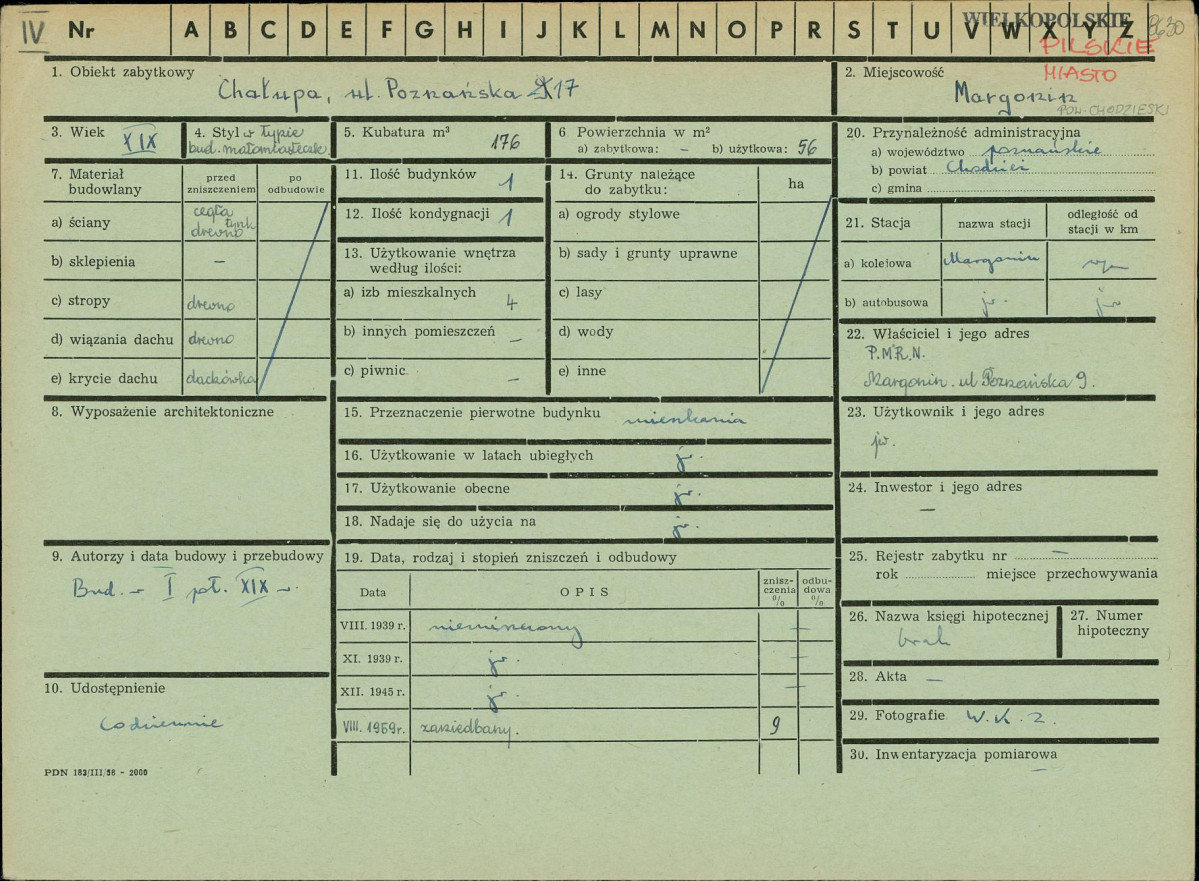 IV Nr A B C D E F G H I J K L M N O P R S T U V W X Y Z
WIELKOPOLSKIE
PILSKIE
MIASTO
1. Obiekt zabytkowy
Chałupa, ul. Poznańska 17
2. Miejscowość
Margonin
POW. CHODZIESKI
3. Wiek
XIX
4. Styl w typie
bud. małomiasteczk.
5. Kubatura m³
176
6 Powierzchnia w m²
a) zabytkowa: - b) użytkowa: 56
20. Przynależność administracyjna
a) województwo poznańskie
b) powiat Chodzież
c) gmina
7. Materiał budowlany
przed zniszczeniem
po odbudowie
a) ściany
cegła
tynk
drewno
b) sklepienia –
c) stropy drewno
d) wiązania dachu drewno
e) krycie dachu dachówka
11. Ilość budynków 1
12. Ilość kondygnacji 1
13. Użytkowanie wnętrza
według ilości:
a) izb mieszkalnych 4
b) innych pomieszczeń –
c) piwnic –
14. Grunty należące
do zabytku:
ha
a) ogrody stylowe
b) sady i grunty uprawne
c) lasy
d) wody
e) inne
21. Stacja
nazwa stacji
odległość od
stacji w km
a) kolejowa Margonin
b) autobusowa jw. jw
22. Właściciel i jego adres
P.M.R.N.
Margonin. ul Poznańska 9.
8. Wyposażenie architektoniczne
15. Przeznaczenie pierwotne budynku mieszkania
16. Użytkowanie w latach ubiegłych jw.
17. Użytkowanie obecne jw.
18. Nadaje się do użycia na jw.
23. Użytkownik i jego adres
jw.
24. Inwestor i jego adres
–
9. Autorzy i data budowy i przebudowy
Bud. w I poł. XIX w.
19. Data, rodzaj i stopień zniszczeń i odbudowy
Data
OPIS
znisz-
czenia
%
odbu-
dowa
%
VIII. 1939 r. niezniszczony –
XI. 1939 r. jw. –
XII. 1945 r. jw. –
VIII. 1959 r. zaniedbany. 9
25. Rejestr zabytku nr –
rok miejsce przechowywania
26. Nazwa księgi hipotecznej
brak
27. Numer
hipoteczny
28. Akta –
29. Fotografie W. K. Z.
30. Inwentaryzacja pomiarowa
–
10. Udostępnienie
Codziennie
PDN 183/III/58 - 2000